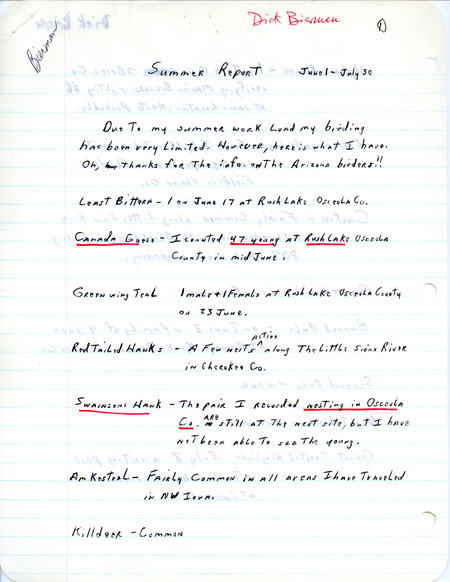 Dick Bierman
①
Bierman
Summer Report June 1 - July 30
Due to my summer work load my birding
has been very limited. However, here is what I have.
Oh, thanks for the info. on the Arizona birders!!
Least Bittern - 1 on June 17 at Rush Lake Osceola Co.
Canada Goose - I counted 47 young at Rush Lake Osceola
County in mid June.
Green wing Teal 1 male + 1 Female at Rush Lake Osceola County
on 23 June.
Red Tailed Hawks - A Few nests active along The Little Sioux River
in Cherokee Co.
Swainsons Hawk - The pair I recorded nesting in Osceola
Co. are still at The nest site, but I have
not been able to see the young.
Am Kestrel - Fairly Common in all areas I have Traveled
in NW Iowa.
Killdeer - Common